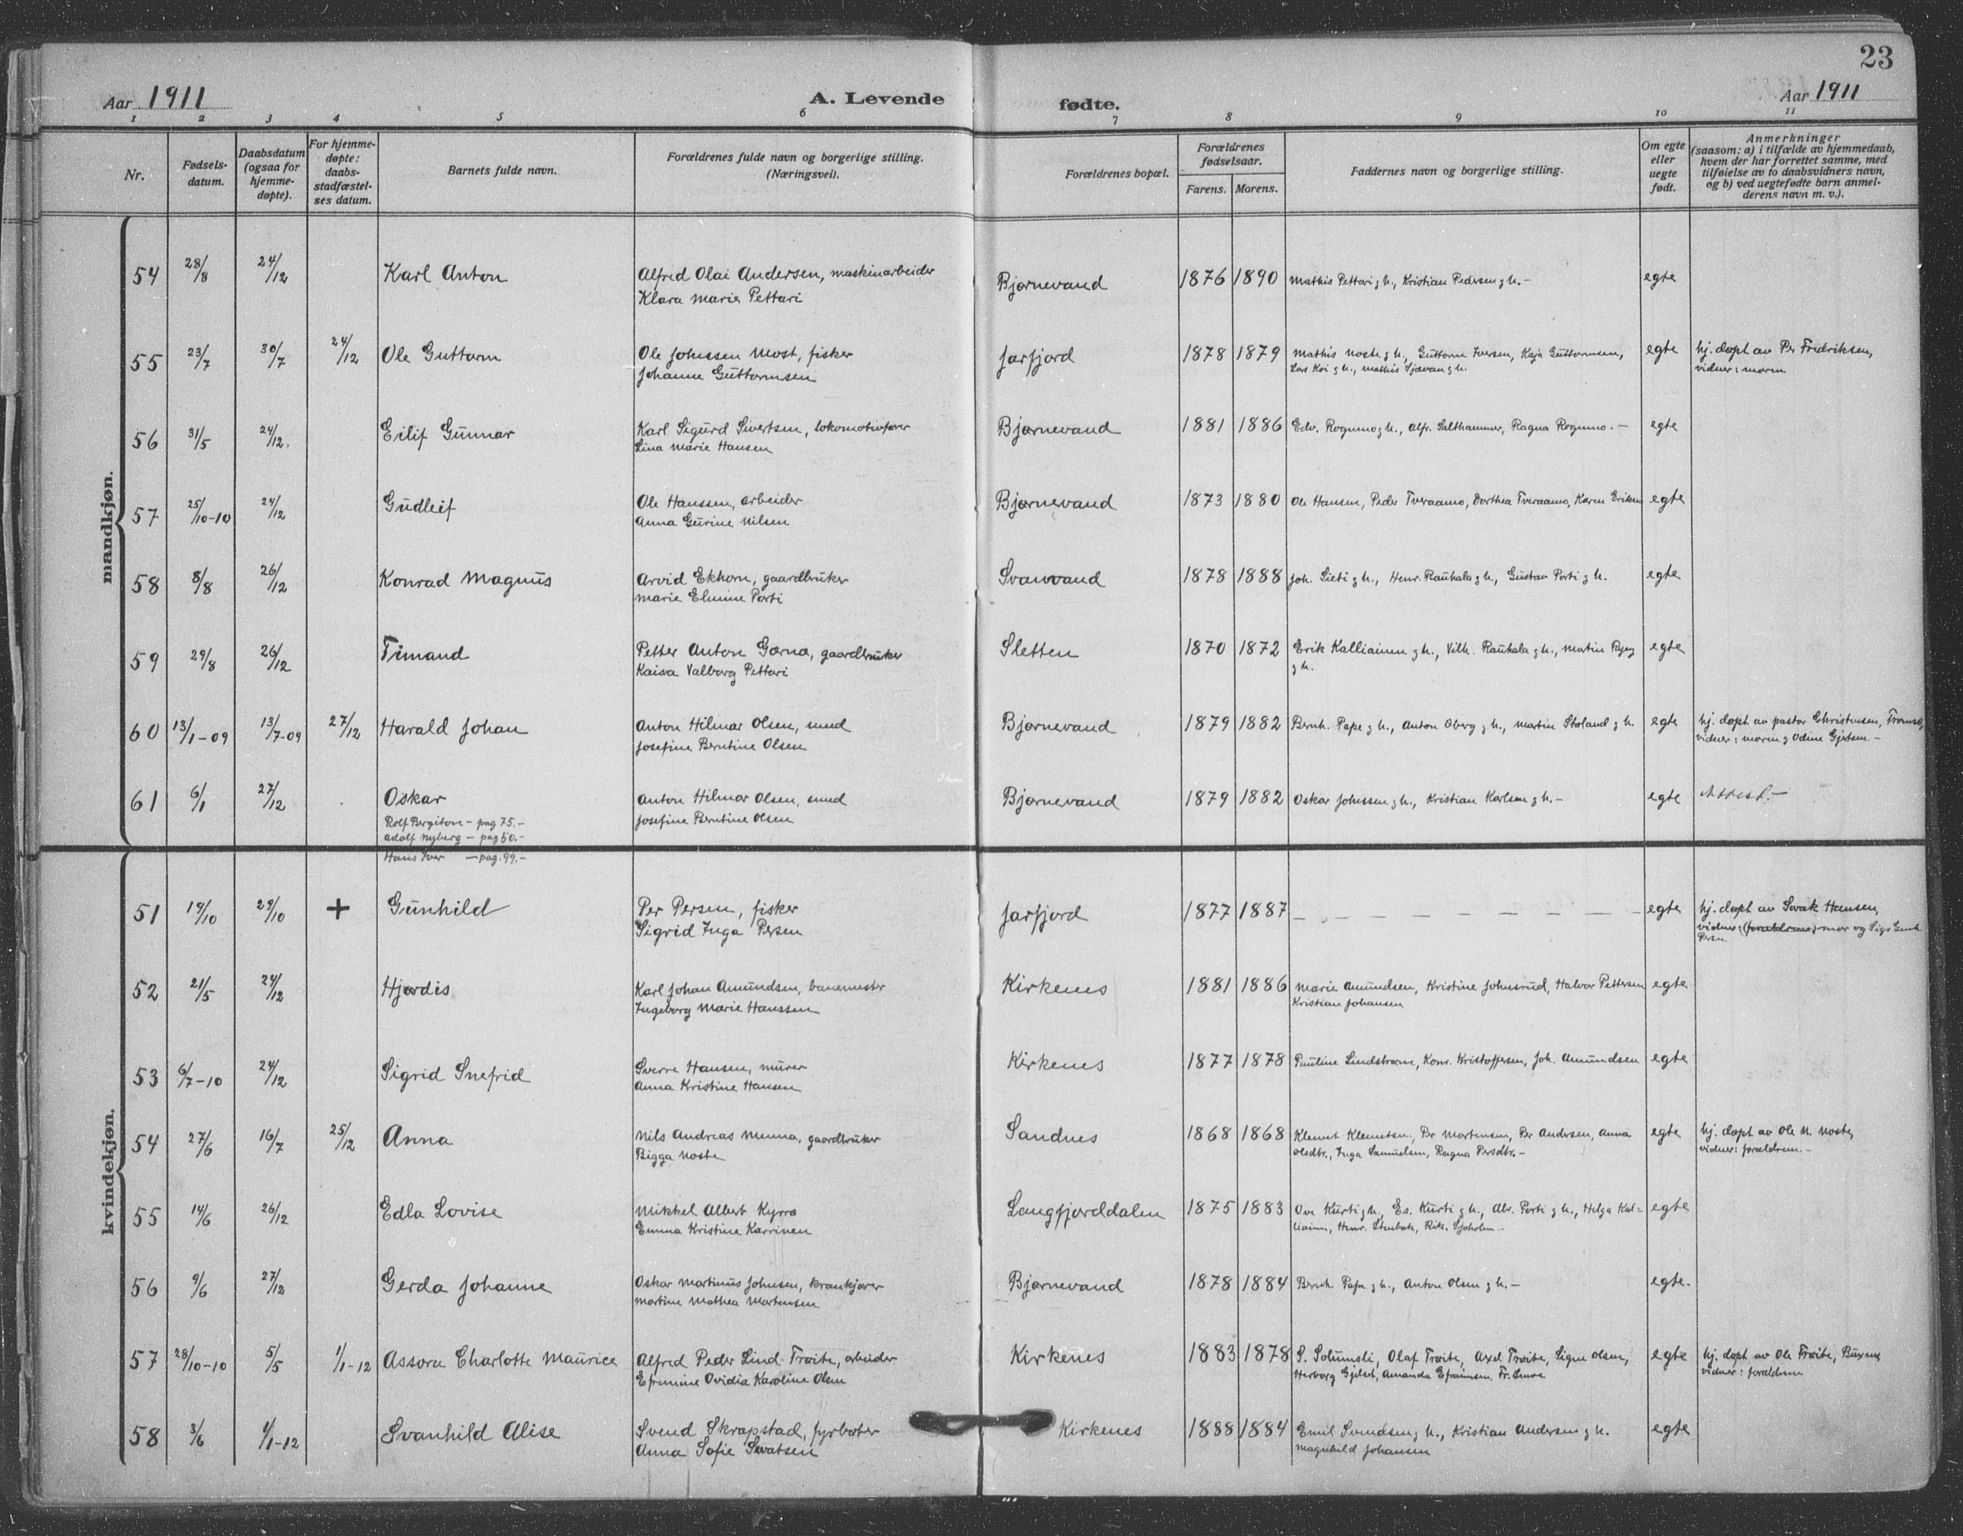 23
Aar 1911
A. Levende
fødte.
Aar 1911
1 2 3 4 5 6 7 8 9 10 11
Nr.
Fødsels-
datum.
Daabsdatum
(ogsaa for
hjemme-
døpte).
For hjemme-
døpte:
daabs-
stadfæstel-
ses datum.
Barnets fulde navn.
Forældrenes fulde navn og borgerlige stilling.
(Næringsvei).
Forældrenes bopæl.
Forældrenes
fødselsaar.
Farens. Morens.
Faddernes navn og borgerlige stilling.
Om egte
eller
uegte
født.
Anmerkninger
(saasom: a) i tilfælde av hjemmedaab,
hvem der har forrettet samme, med
tilføielse av to daabsvidners navn,
og b) ved uegtefødte barn anmel-
derens navn m. v.).
mandkjøn.
54 28/8 24/12 Karl Anton Alfred Olai Andersen, maskinarbeider Bjørnevand 1876 1890 Mathis Pettari g h., Kristian Pedersen g h. – egte
Klara Marie Pettari
55 23/7 30/7 24/12 Ole Guttorm Ole Johnssen Most, fisker Jarfjord 1878 1879 Mathis Noste g h., Guttorm Iversen, Kaja Guttormsen, egte hj. døpt av Per Fredriksen,
Johanne Guttormsen Lars Koi g h., Mathis g h. vidner: moren
56 31/5 24/12. Eilif Gunnar Karl Sigurd Sivertsen, lokomotivfører Bjørnevand 1881 1886 Edv. Rognmo g h., Alfr. Salthammer, Ragna Rognmo. – egte
Lina Marie Hansen
57 25/10-10 24/12 Gudleif Ole Hanssen, arbeider Bjørnevand 1873 1880 Ole Hansen, Peder Tveraamo, Dorthea Tveraamo, Karen egte
Anna Gurine Nilsen
58 8/8 26/12 Konrad Magnus Arvid Ekhorn, gaardbruker Svanvand 1878 1888 Joh. Sieti g h., Henr. Rauhala g h., Gustav Porti g h. egte
Marie Elmine Porti
59 29/8 26/12 Trimand Petter Anton Gærnæ, gaardbruker Sletten 1870 1872 Erik Kalliainen g h., Vilh. Rauhala g h., Martin egte
Kaisa Valborg Pettari g h.
60 13/1-09 13/7-09 27/12 Harald Johan Anton Hilmar Olsen, smed Bjørnevand 1879 1882 Bernh. Pape g h., Anton Oberg g h., Martin Stoland g h. egte hj. døpt av pastor Christensen, Tromsø,
Josefine Berntine Olsen vidner: moren g Odine Gjertsen. –
61 6/1 27/12 Oskar Anton Hilmar Olsen, smed Bjørnevand 1879 1882 Oskar Johnssen g h., Kristian Karlsen g h. – egte Attest. –
Rolf Bergiton – pag 75. – Josefine Berntine Olsen
Adolf Nyberg – pag 50. –
Hans Iver – pag. 99. –
kvindekjøn.
51 19/10 29/10 + Gunhild Per Persen, fisker Jarfjord 1877 1887 – – – – – – – – egte hj. døpt av Hansen,
Sigrid Inga Persen vidner: (forældrene) mor og
Persen
52 21/5 24/12 Hjørdis Karl Johan Amundsen, banemester Kirkenes 1881 1886 Marie Amundsen, Kristine Johnsrud, Halvor Pettersen egte
Ingeborg Marie Hanssen Kristian Johansen
53 6/7-10 24/12 Sigrid Snefrid Sverre Hansen, murer Kirkenes 1877 1878 Pauline Lindstrøm, Konr. Kristoffersen, Joh. Amundsen egte
Anna Kristine Hansen
54 27/6 16/7 25/12 Anna Nils Andreas Menna, gaardbruker Sandnes 1868 1868 Klemet Klemetsen, Per Mortensen, Per Andersen, Anna egte hj. døpt av Ole N. Noste,
Bigga Noste Olsdtr., Inga Samuelsen, Ragna Persdtr. – vidner: forældrene. –
55 14/6 26/12 Edla Lovise Mikkel Albert Kyrrø Langfjorddalen 1875 1883 Ove Kurti g h., Es. Kurti g h., Abr. Porti g h., Helga Kal- egte
Emma Kristine Karrinen liainen, Henr. Stenbak, Rik. Sjøholm. –
56 9/6 27/12 Gerda Johanne Oskar Martinus Johnsen, krankjører Bjørnevand 1878 1884 Bernh. Pape g h., Anton Olsen g h. – egte.
Martine Mathea Mortensen
57 28/10-10 5/5 1/1-12 Assora Charlotte Maurice Alfred Peder Lind Trøite, arbeider Kirkenes 1883 1878 S. Solumsli, Olaf Trøite, Axel Trøite, Signe Olsen, egte hj. døpt av Ole Trøite,
Efremine Ovidia Karoline Olsen Herborg Gjelset, Amanda Efraimsen, Fr. vidner: forældrene
58 3/6 1/1-12 Svanhild Alise Svend Skrapstad, fyrbøter Kirkenes 1888 1884 Emil Svendsen g h., Kristian Andersen g h. egte
Anna Sofie Magnhild Johansen